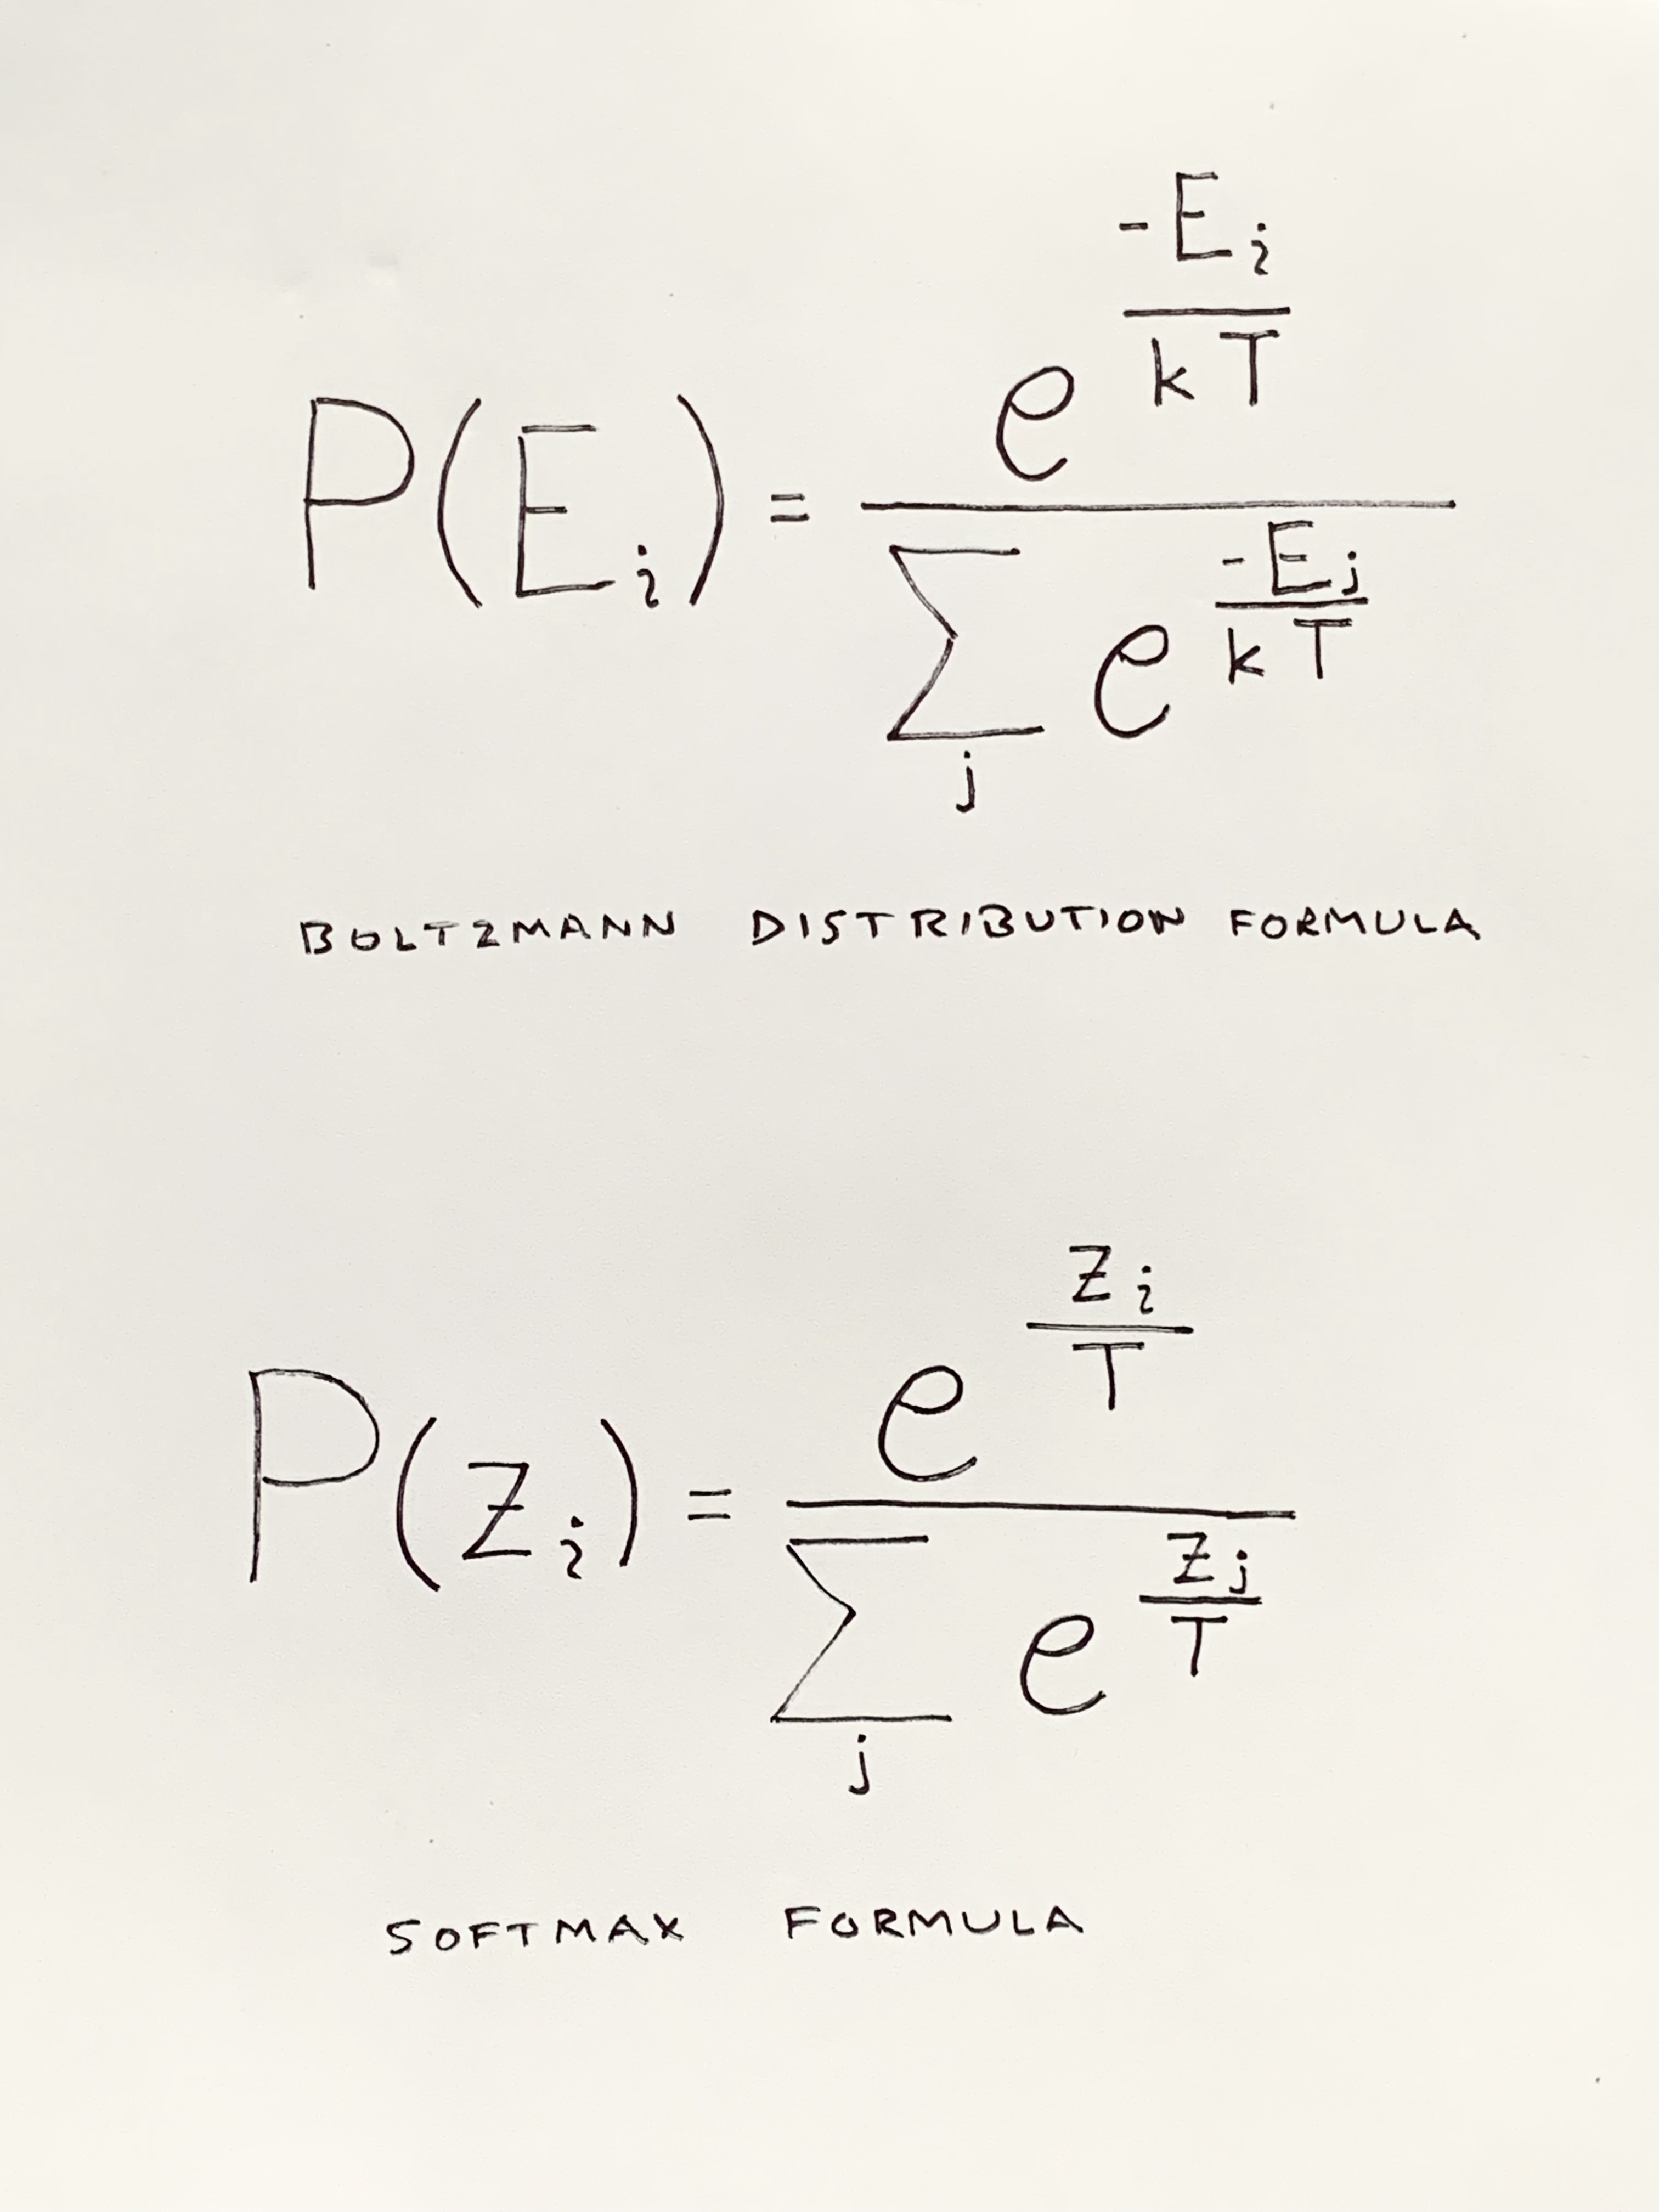 P(E_i) = e^(-E_i / kT) / Σ_j e^(-E_j / kT)
BOLTZMANN DISTRIBUTION FORMULA
P(z_i) = e^(z_i / T) / Σ_j e^(z_j / T)
SOFTMAX FORMULA